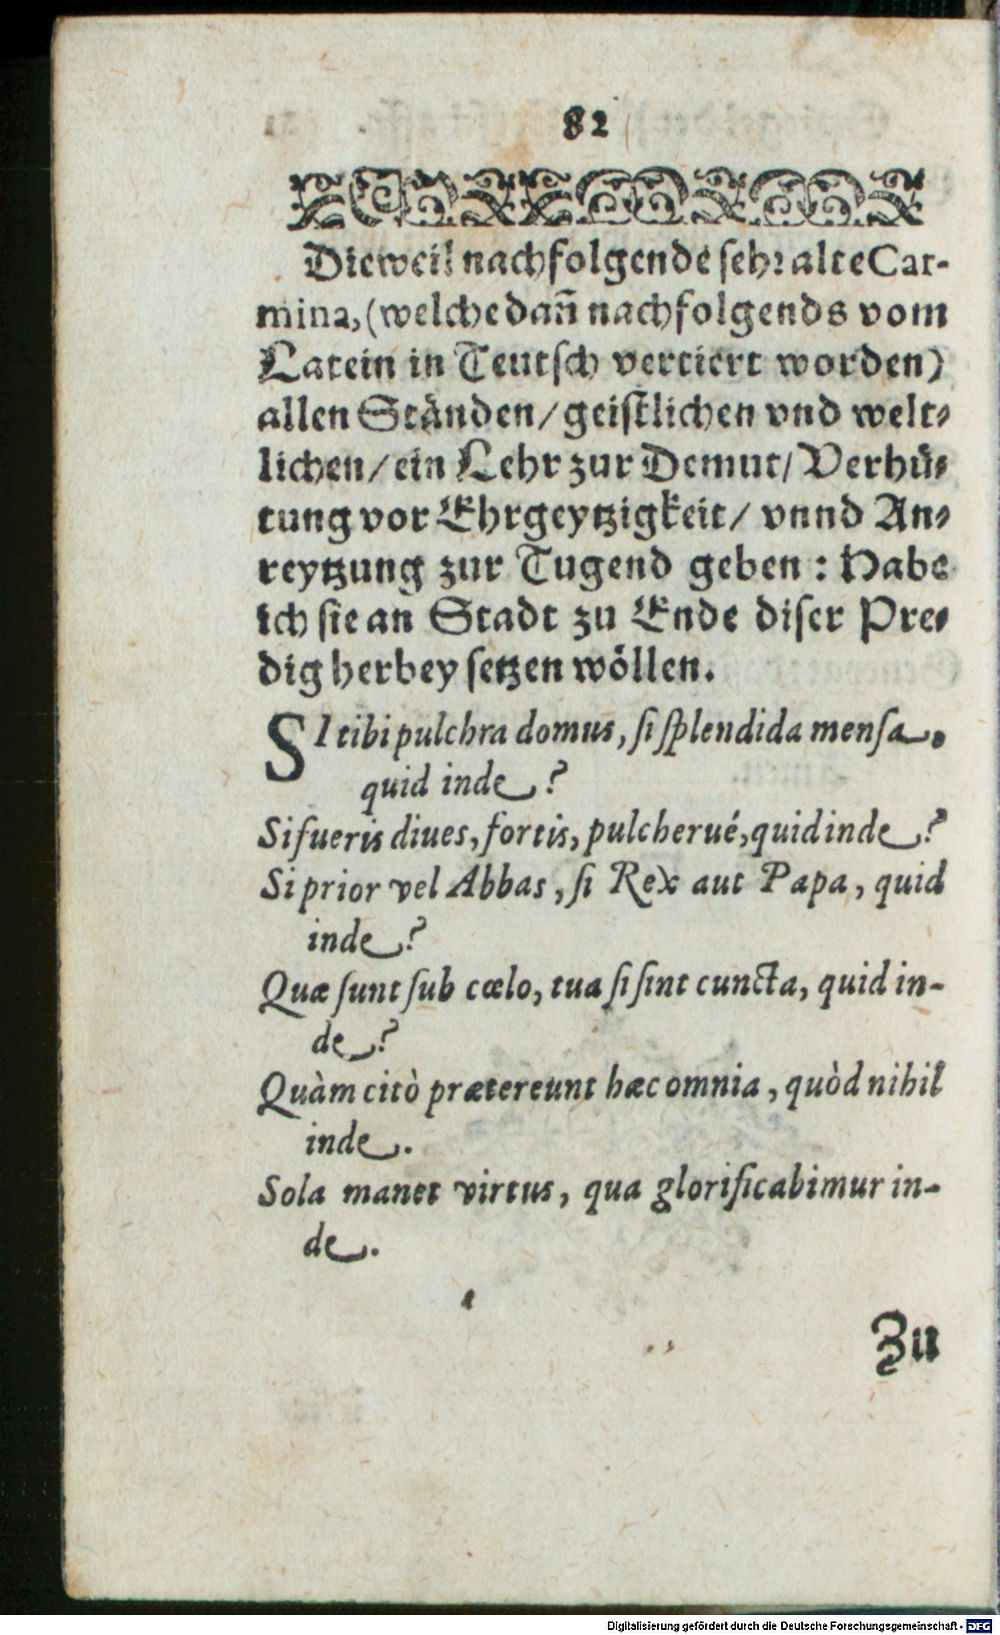 82
Dieweil nachfolgende sehr alte Car-
mina, (welche dañ nachfolgends vom
Latein in Teutsch vertiert worden)
allen Ständen/geistlichen vnd welt-
lichen/ein Lehr zur Demut/Verhü-
tung vor Ehrgeytzigkeit/ vnnd An-
reytzung zur Tugend geben : Habe
ich sie an Stadt zu Ende diser Pre-
dig herbey setzen wöllen.
SI tibi pulchra domus, si splendida mensa.
quid inde ?
Si fueris diues, fortis, pulcherué, quid inde ?
Si prior vel Abbas, si Rex aut Papa, quid
inde ?
Quæ sunt sub cœlo, tua si sint cuncta, quid in-
de ?
Quàm citò prætereunt hæc omnia, quòd nihil
inde.
Sola manet virtus, qua glorificabimur in-
de.
Zu
Digitalisierung gefördert durch die Deutsche Forschungsgemeinschaft - DFG